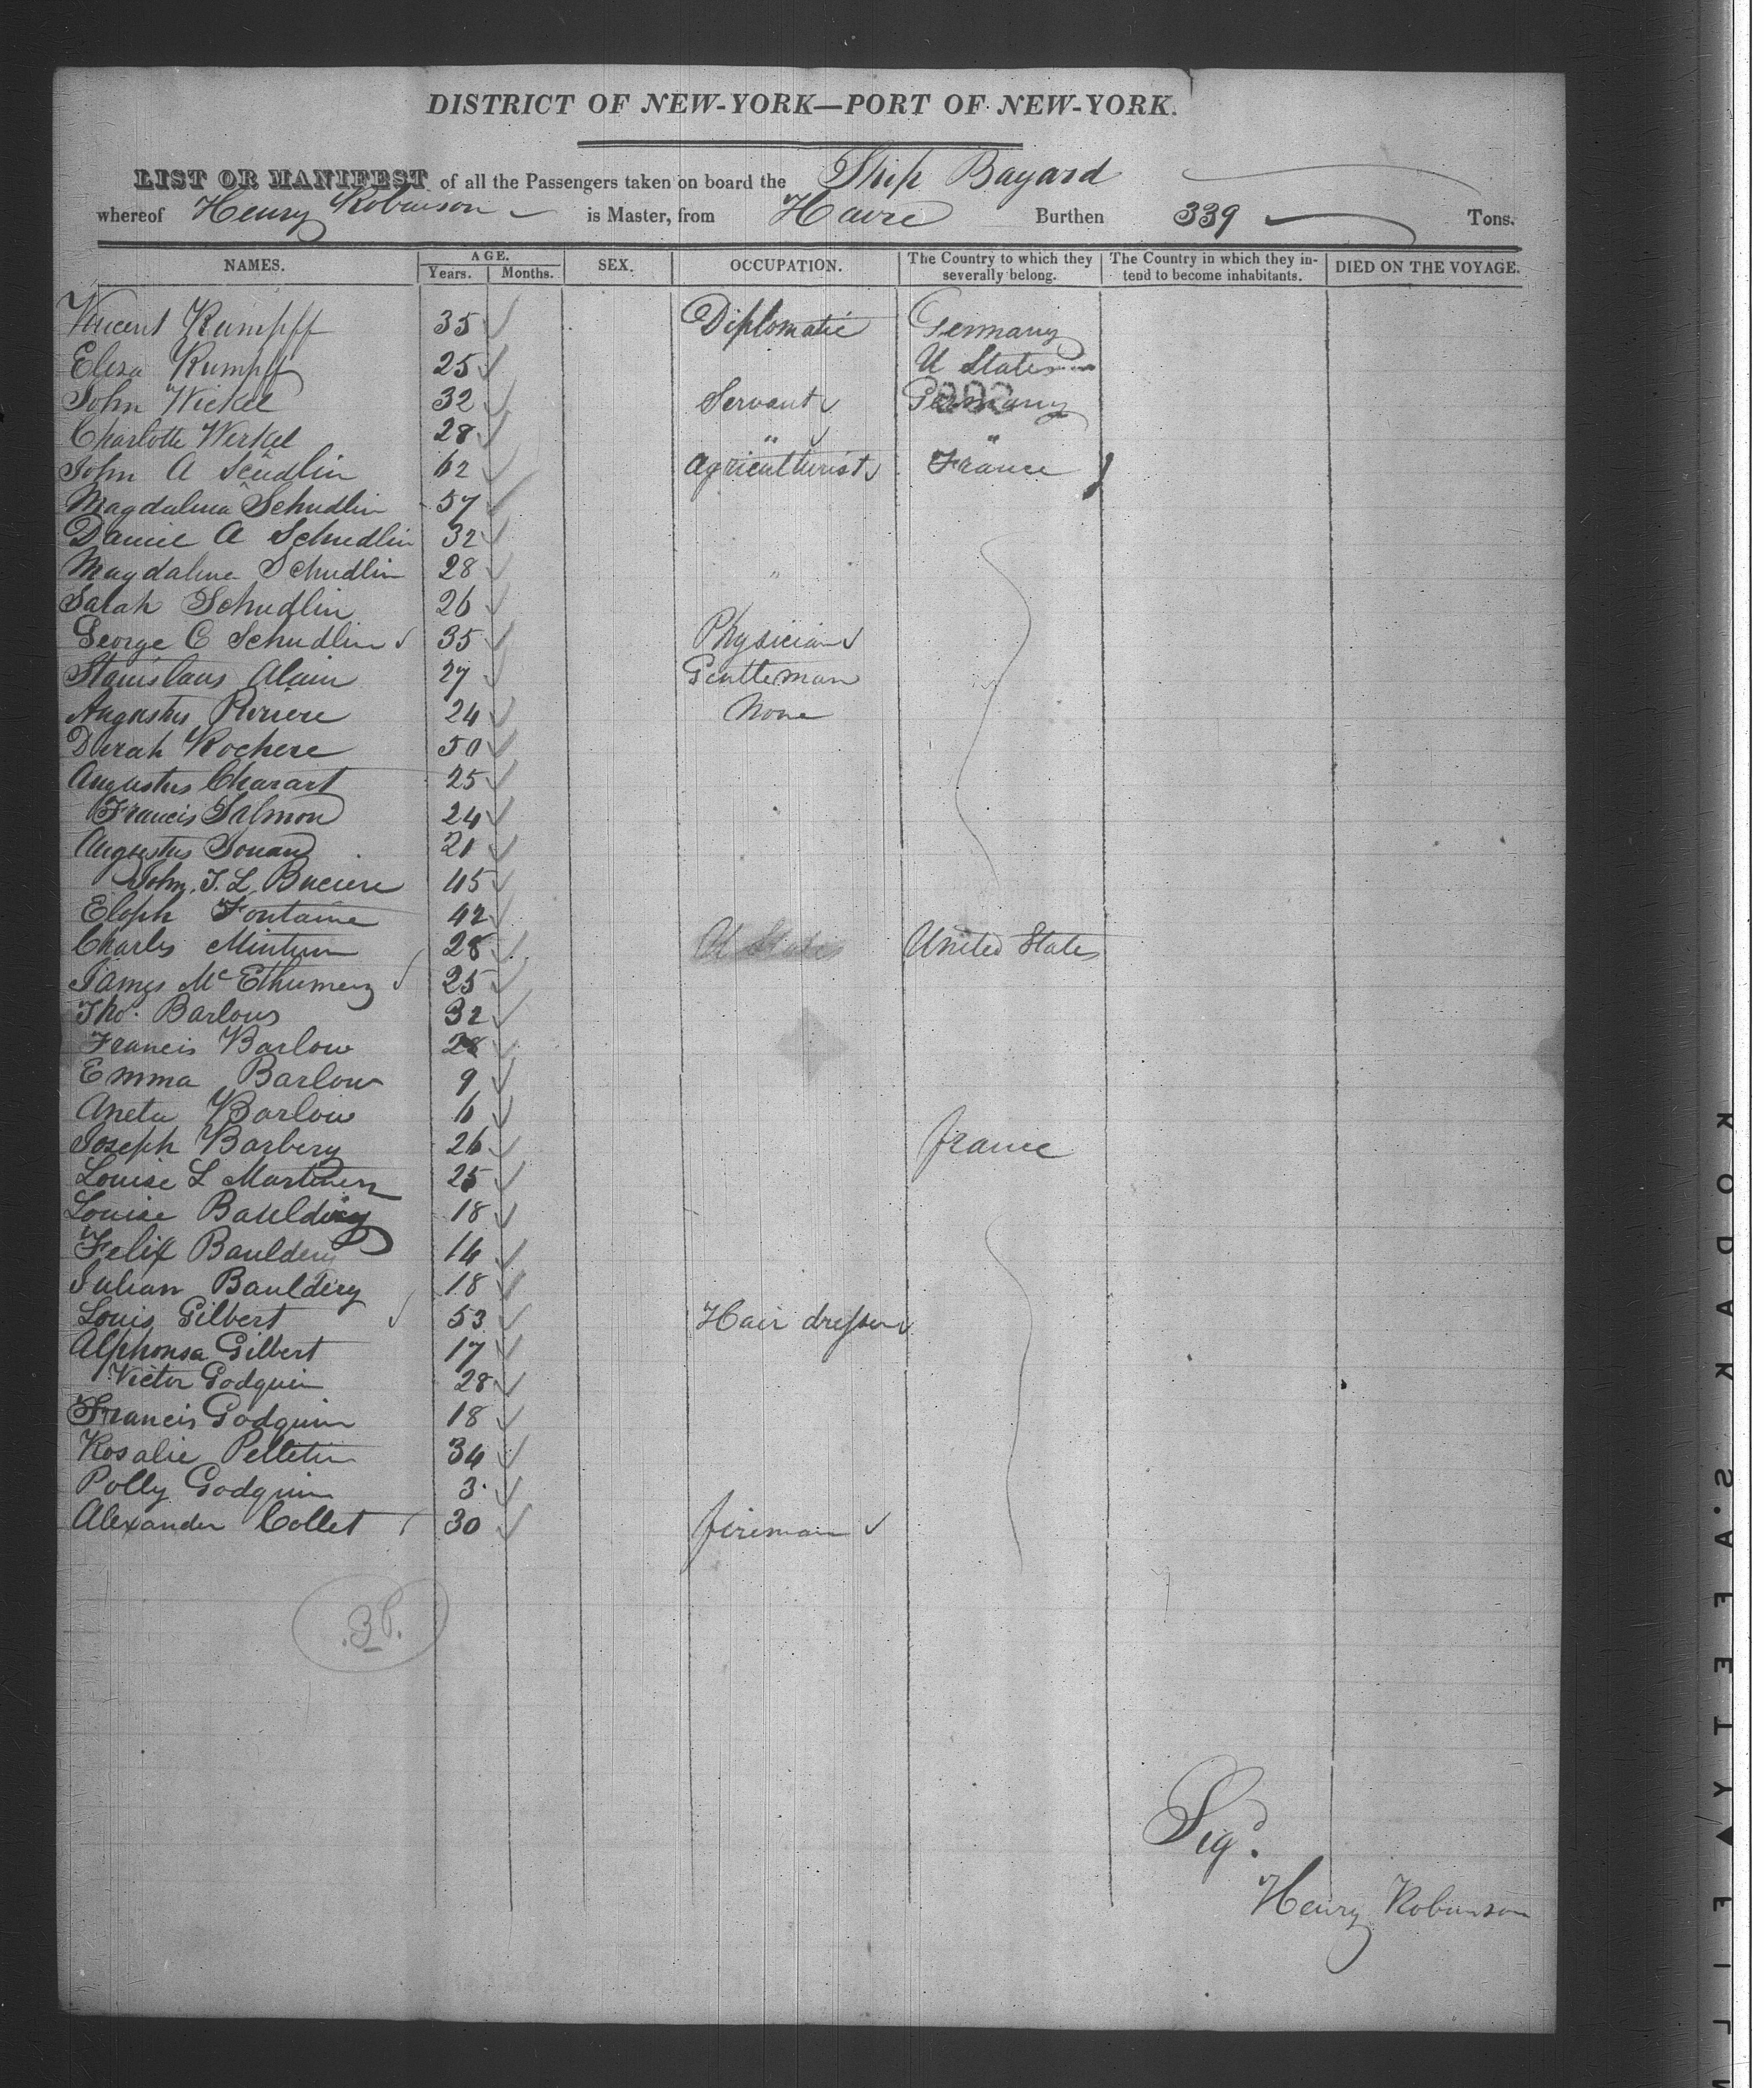 DISTRICT OF NEW-YORK—PORT OF NEW-YORK.
LIST OR MANIFEST of all the Passengers taken on board the Ship Bayard
whereof Henry Robinson is Master, from Havre Burthen 339 Tons.
NAMES. AGE. Years. Months. SEX. OCCUPATION. The Country to which they severally belong. The Country in which they intend to become inhabitants. DIED ON THE VOYAGE.
Vincent Rumpff 35 Diplomatic Germany
Eliza Rumpff 25 U States
John Wickel 32 Servant Germany
Charlotte Werkel 28 " "
John A Scudlin 62 Agriculturist France
Magdalina Schudlin 57
Daniel A Schudlin 32
Magdalina Schudlin 28 "
Sarah Schudlin 26
George C Schudlin 35 Physician
Stanislaus Alain 27 Gentleman
Augustus Riviere 24 None
Durah Rochere 50
Augustus Charart 25
Francis Salmon 24
Augustus 21
John. J. L. 45
Eloph Fontaine 42
Charles Minturn 28 U States United States
James Mc 25
Tho. Barlow 32
Francis Barlow 28
Emma Barlow 9
Aneta Barlow 6
Joseph Barbery 26 france
Louise L 25
Louise Bauldery 18
Felix Bauldery 14
Julian Bauldery 18
Louis Gilbert 53 Hair dresser
Alphonsa Gilbert 17
Victor Godquin 28
Francis Godquin 18
Rosalie Pelletin 34
Polly Godquin 3
Alexander Collet 30 fireman
Sigd.
Henry Robinson
KODAK S.AFETY▲